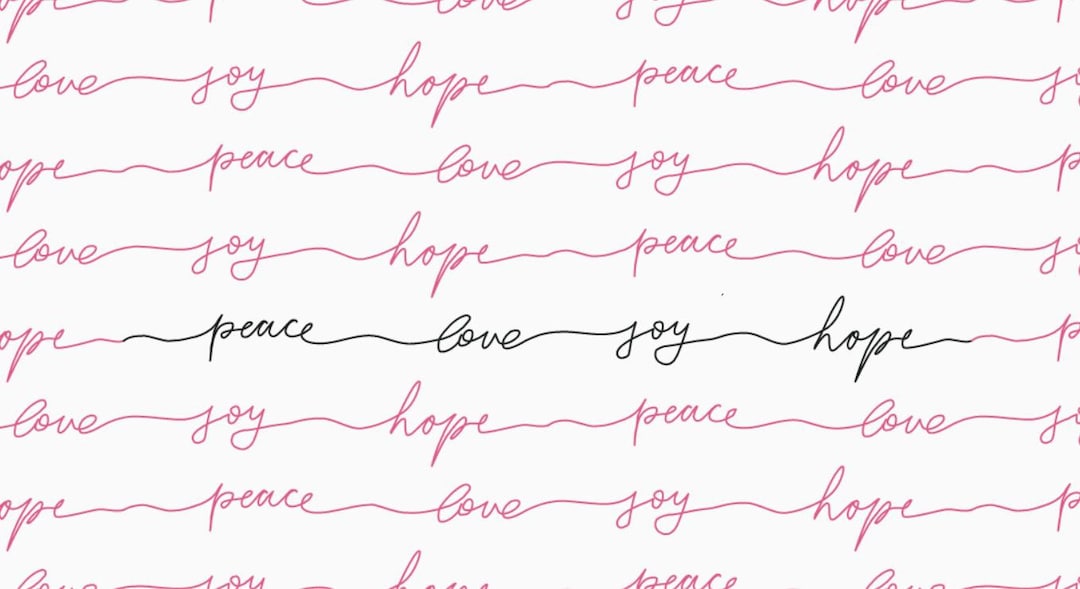 hope peace love joy hope
love joy hope peace love
ope peace love joy hope
love joy hope peace love
ope peace love joy hope
love joy hope peace love
ope peace love joy hope
love joy hope peace love